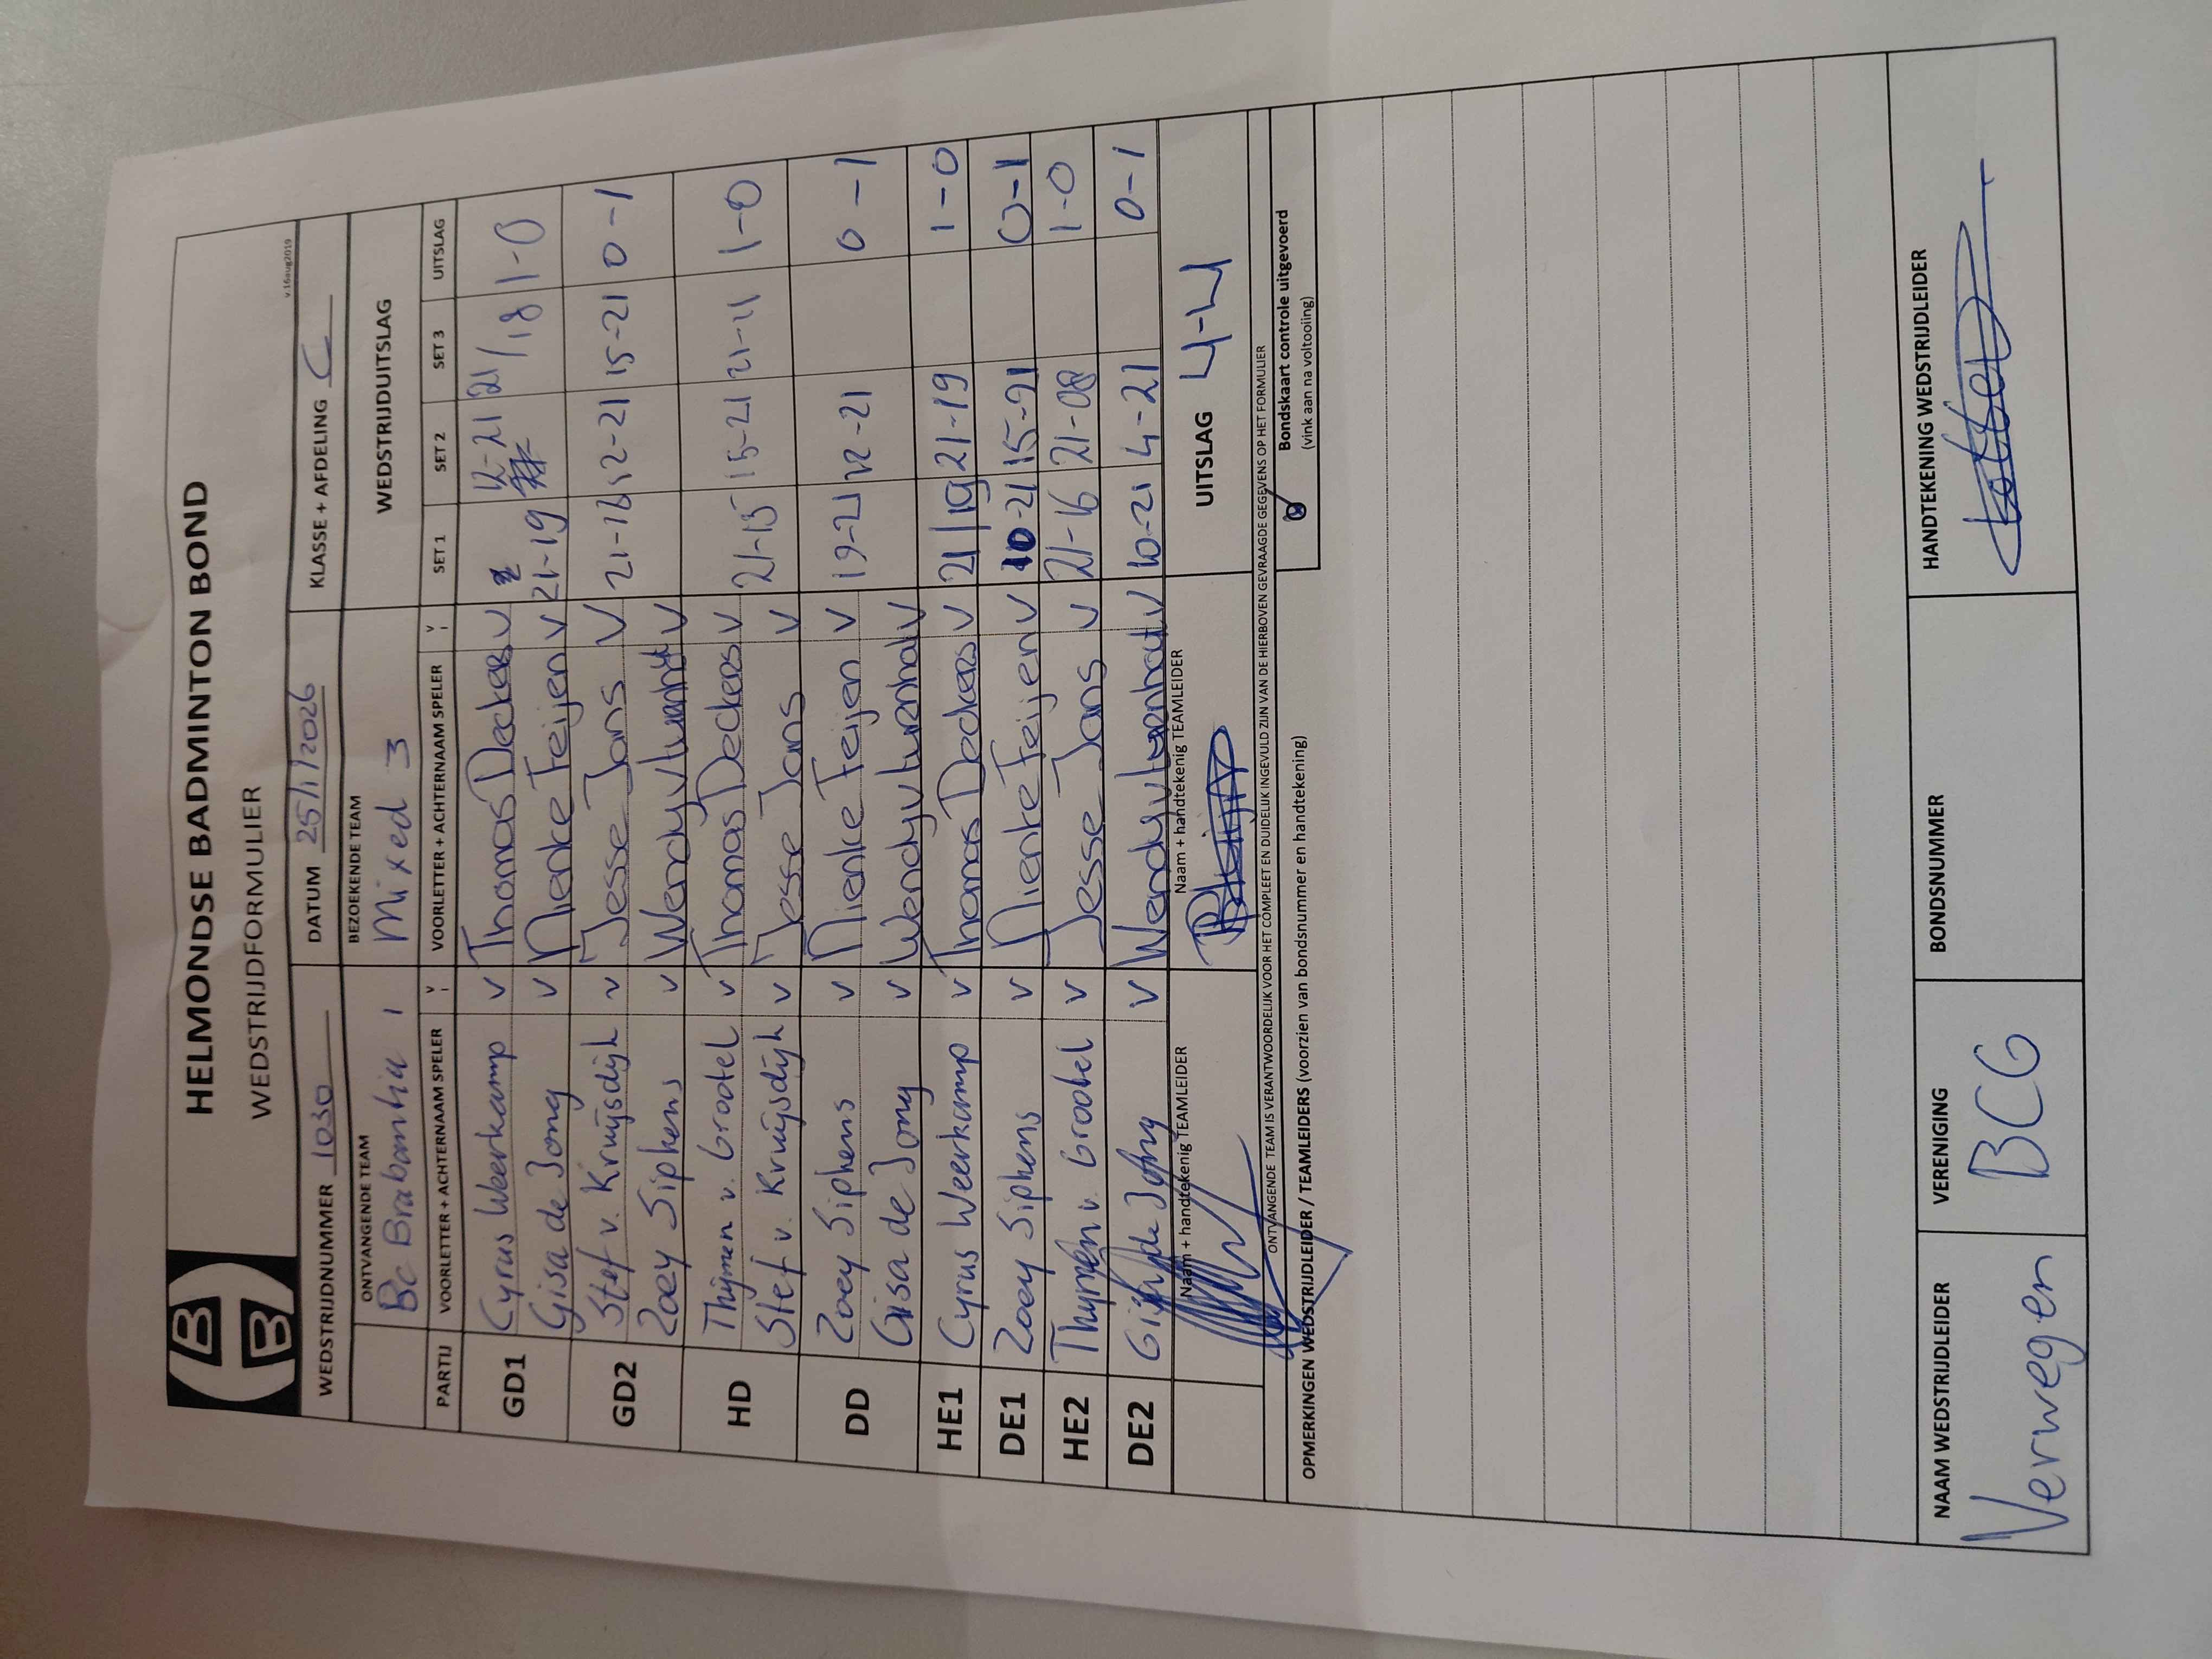 HELMONDSE BADMINTON BOND
WEDSTRIJDFORMULIER
v.16aug2019
WEDSTRIJDNUMMER 1030 DATUM 25/1/2026 KLASSE + AFDELING C
ONTVANGENDE TEAM BEZOEKENDE TEAM WEDSTRIJDUITSLAG
Bc Brabantia 1 Mixed 3
PARTIJ VOORLETTER + ACHTERNAAM SPELER V VOORLETTER + ACHTERNAAM SPELER V SET 1 SET 2 SET 3 UITSLAG
GD1 Cyrus Weerkamp V Thomas Deckers V 21-19 12-21 21/18 1-0
Gisa de Jong V Nienke Feijen V
GD2 Stef v. Kruijsdijk V Jesse Jans V 21-18 12-21 15-21 0-1
Zoey Siphens V Wendy v V
HD Thijmen v. Grootel V Thomas Deckers V 21-15 15-21 21-11 1-0
Stef v. Kruijsdijk V Jesse Jans V
DD Zoey Siphens V Nienke Feijen V 19-21 12-21 0-1
Gisa de Jong V Wendy v V
HE1 Cyrus Weerkamp V Thomas Deckers V 21/19 21-19 1-0
DE1 Zoey Siphens V Nienke Feijen V 10-21 15-21 0-1
HE2 Thymen v. Grootel V Jesse Jans V 21-16 21-08 1-0
DE2 de Jong V Wendy v V 10-21 4-21 0-1
Naam + handtekenig TEAMLEIDER Naam + handtekenig TEAMLEIDER UITSLAG 4-4
ONTVANGENDE TEAM IS VERANTWOORDELIJK VOOR HET COMPLEET EN DUIDELIJK INGEVULD ZIJN VAN DE HIERBOVEN GEVRAAGDE GEGEVENS OP HET FORMULIER
OPMERKINGEN WEDSTRIJDLEIDER / TEAMLEIDERS (voorzien van bondsnummer en handtekening)
Bondskaart controle uitgevoerd
(vink aan na voltooling)
NAAM WEDSTRIJDLEIDER VERENIGING BONDSNUMMER HANDTEKENING WEDSTRIJDLEIDER
Verwegen BCG